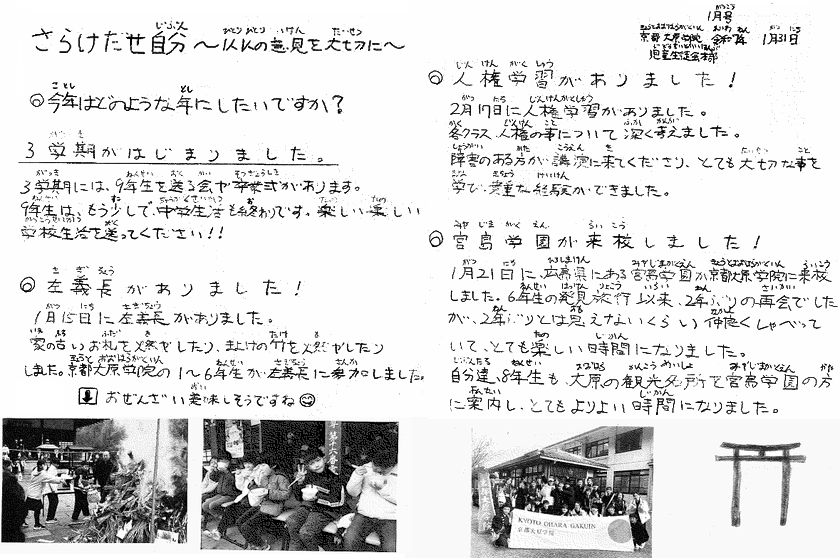 さらけだせ自分 〜仏仏の意見を大切に〜
1月号
京都大原学院 令和7年 1月31日
児童生徒会本部
◎今年はどのような年にしたいですか?
3学期がはじまりました。
3学期には、9年生を送る会や卒業式があります。
9年生は、もう少しで中学生活も終わりです。楽しい楽しい
学校生活を送ってください!!
◎左義長がありました!
1月15日に左義長がありました。
家の古いお札を燃やしたり、まよけの竹を燃やしたり
しました。京都大原学院の1〜6年生が左義長に参加しました。
おぜんざい美味しそうですね
◎人権学習がありました!
2月17日に人権学習がありました。
各クラス人権の事について深く考えました。
障害のある方が講演に来てくださり、とても大切な事を
学び、貴重な経験ができました。
◎宮島学園が来校しました!
1月21日に、広島県にある宮島学園が京都大原学院に来校
しました。6年生の発見旅行以来、2年ぶりの再会でした
が、2年ぶりとは思えないくらい仲良くしゃべって
いて、とても楽しい時間になりました。
自分達、8年生も、大原の観光名所で宮島学園の方
に案内し、とてもよりよい時間になりました。
KYOTO OHARA GAKUIN
京都大原学院